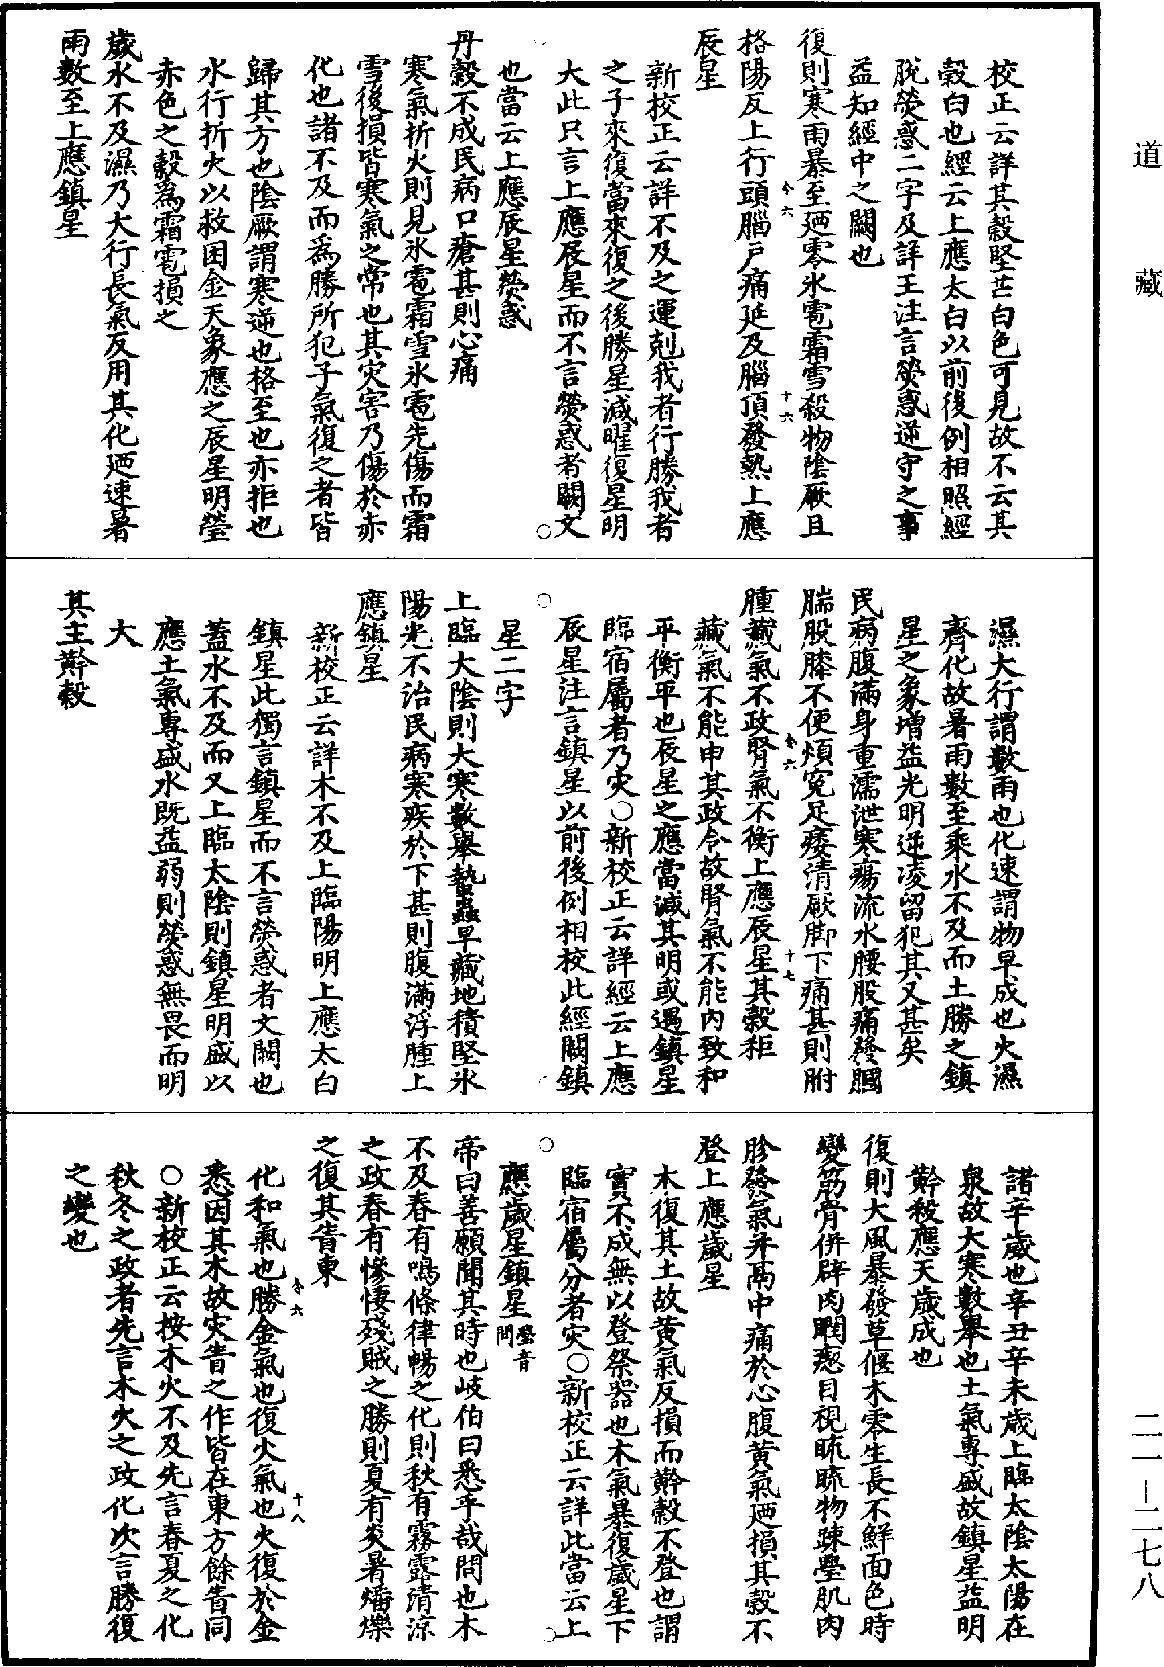 道藏
校正云詳其穀堅芒白色可見故不云其
穀白也經云上應太白以前後例相照經
脫熒惑二字及詳王注言熒惑逆守之事
益知經中之闕也
復則寒雨暴至廼零冰雹霜雪殺物陰厥且
格陽反上行頭腦戶痛延及腦頂發熱上應
辰星
新校正云詳不及之運剋我者行勝我者
之子來復當來復之後勝星減曜復星明
大此只言上應辰星而不言熒惑者闕文
也當云上應辰星熒惑
丹穀不成民病口瘡甚則心痛
寒氣折火則見冰雹霜雪冰雹先傷而霜
雪後損皆寒氣之常也其灾害乃傷於赤
化也諸不及而爲勝所犯子氣復之者皆
歸其方也陰厥謂寒逆也格至也亦拒也
水行折火以救困金天象應之辰星明瑩
赤色之穀爲霜雹損之
歲水不及濕乃大行長氣反用其化廼速暑
雨數至上應鎮星
濕大行謂數雨也化速謂物早成也火濕
齊化故暑雨數至乘水不及而土勝之鎮
星之象增益光明逆凌留犯其又甚矣
民病腹滿身重濡泄寒瘍流水腰股痛發膕
腨股膝不便煩冤足痿清厥脚下痛甚則胕
腫藏氣不政腎氣不衡上應辰星其穀秬
藏氣不能申其政令故腎氣不能內致和
平衡平也辰星之應當減其明或遇鎮星
臨宿屬者乃灾○新校正云詳經云上應
辰星注言鎮星以前後例相校此經闕鎮
星二字
上臨大陰則大寒數舉蟄蟲早藏地積堅冰
陽光不治民病寒疾於下甚則腹滿浮腫上
應鎮星
新校正云詳木不及上臨陽明上應太白
鎮星此獨言鎮星而不言熒惑者文闕也
蓋水不及而又上臨太陰則鎮星明盛以
應土氣專盛水既益弱則熒惑無畏而明
大
其主黅穀
諸辛歲也辛丑辛未歲上臨太陰太陽在
泉故大寒數舉也土氣專盛故鎮星益明
黅秡應天歲成也
復則大風暴發草偃木零生長不鮮面色時
變筋骨併辟肉瞤瘛目視䀮䀮物疎璺肌肉
胗發氣并鬲中痛於心腹黃氣廼損其穀不
登上應歲星
木復其土故黃氣反損而黅穀不登也謂
實不成無以登祭器也木氣暴復歲星下
臨宿屬分者灾○新校正云詳此當云上
應歲星鎮星璺音問
帝曰善願聞其時也岐伯曰悉乎哉問也木
不及春有鳴條律暢之化則秋有霧露清涼
之政春有慘悽殘賊之勝則夏有炎暑燔爍
之復其眚東
化和氣也勝金氣也復火氣也火復於金
悉因其木故灾眚之作皆在東方餘眚同
○新校正云按木火不及先言春夏之化
秋冬之政者先言木火之政化次言勝復
之變也
二一-二七八